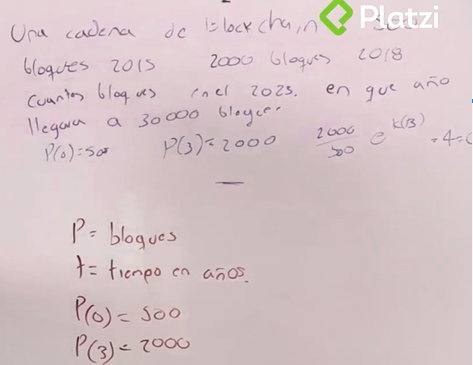 Una cadena de Blockchain 500
Platzi
bloques 2015 2000 bloques 2018
cuantos bloques en el 2025. en que año
llegara a 30000 bloques.
P(0)=500 P(3)=2000 2000/500 e^k(3) =4=
P= bloques
t= tiempo en años.
P(0)= 500
P(3)= 2000